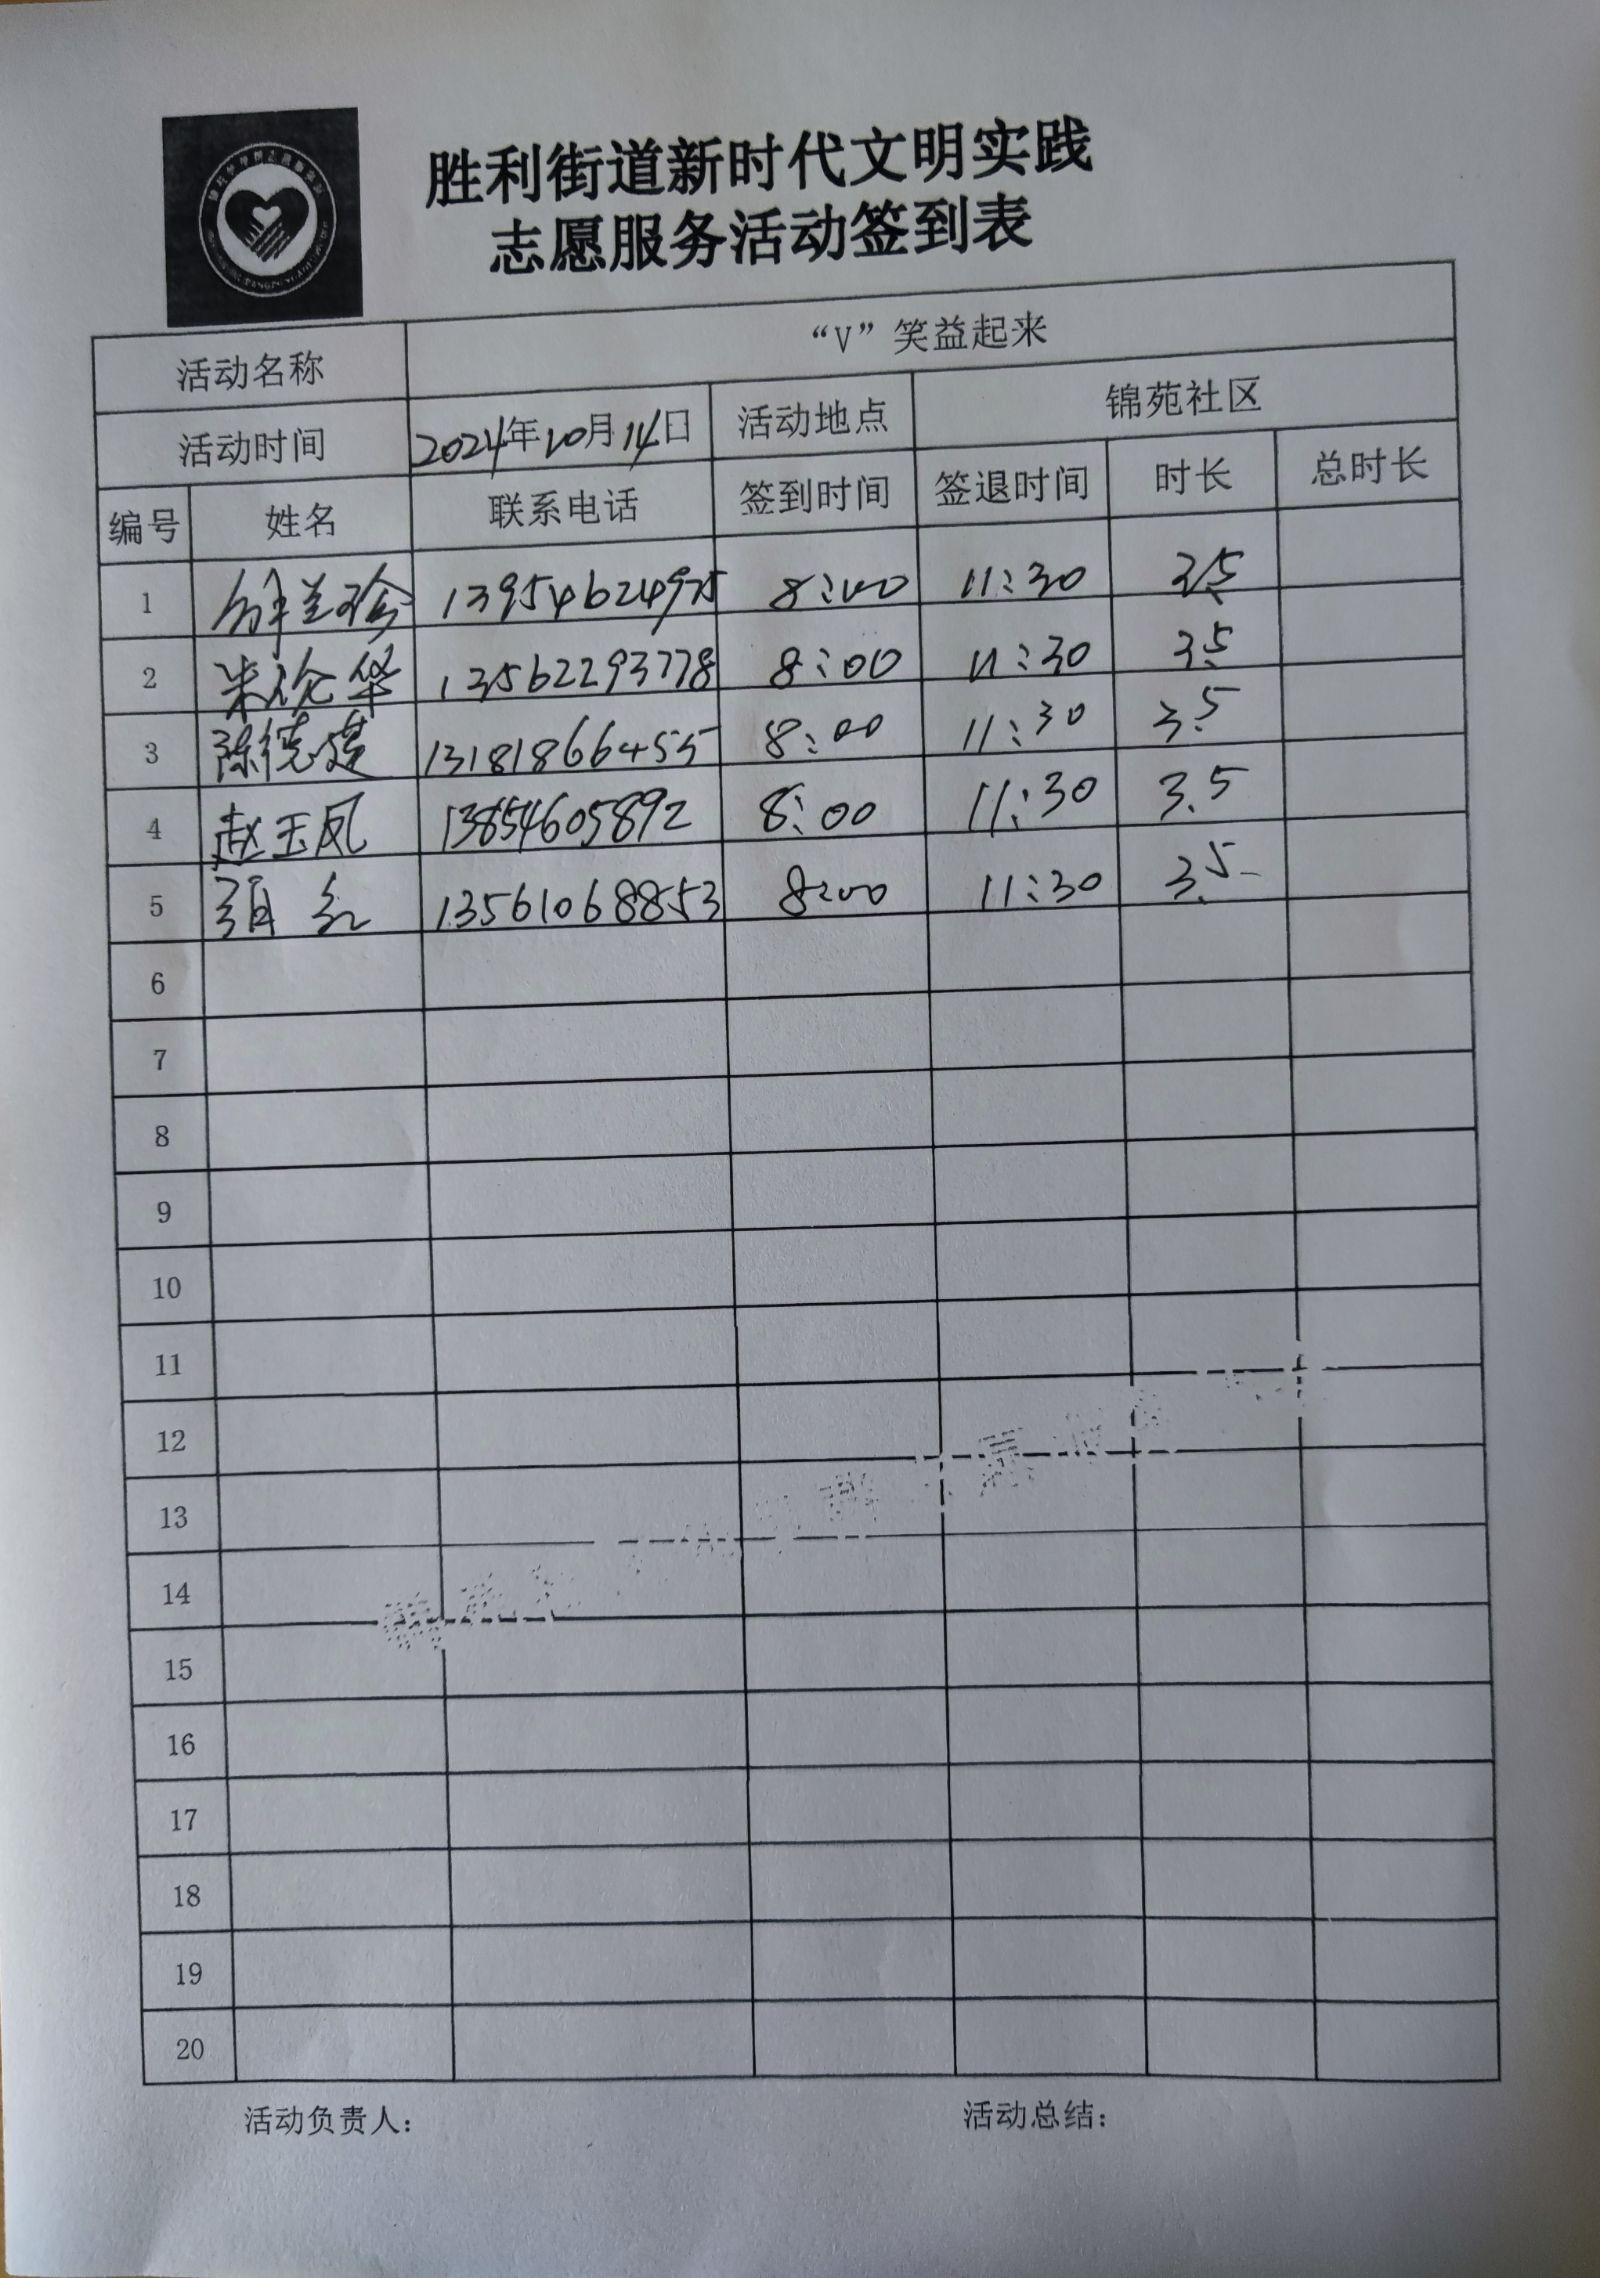 胜利街道新时代文明实践
志愿服务活动签到表
活动名称 “V”笑益起来
活动时间 2024年10月14日 活动地点 锦苑社区
编号 姓名 联系电话 签到时间 签退时间 时长 总时长
1 解兰珍 13954624975 8:00 11:30 3.5
2 朱论华 13562293778 8:00 11:30 3.5
3 陈德建 13181866455 8:00 11:30 3.5
4 赵玉凤 13854605892 8:00 11:30 3.5
5 13561068853 8:00 11:30 3.5
6
7
8
9
10
11
12
13
14
15
16
17
18
19
20
活动负责人: 活动总结: